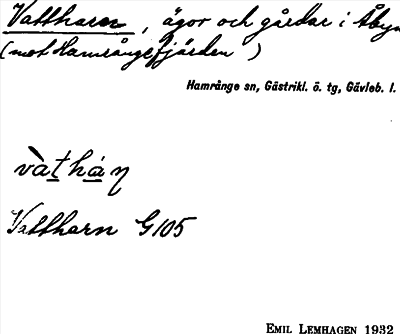 Vattharen, ägor och gårdar i Åbyn
(mot Hamrångefjärden )
Hamrånge sn, Gästrikl. ö. tg, Gävleb. l.
vàthán
Vattharn G105
EMIL LEMHAGEN 1932